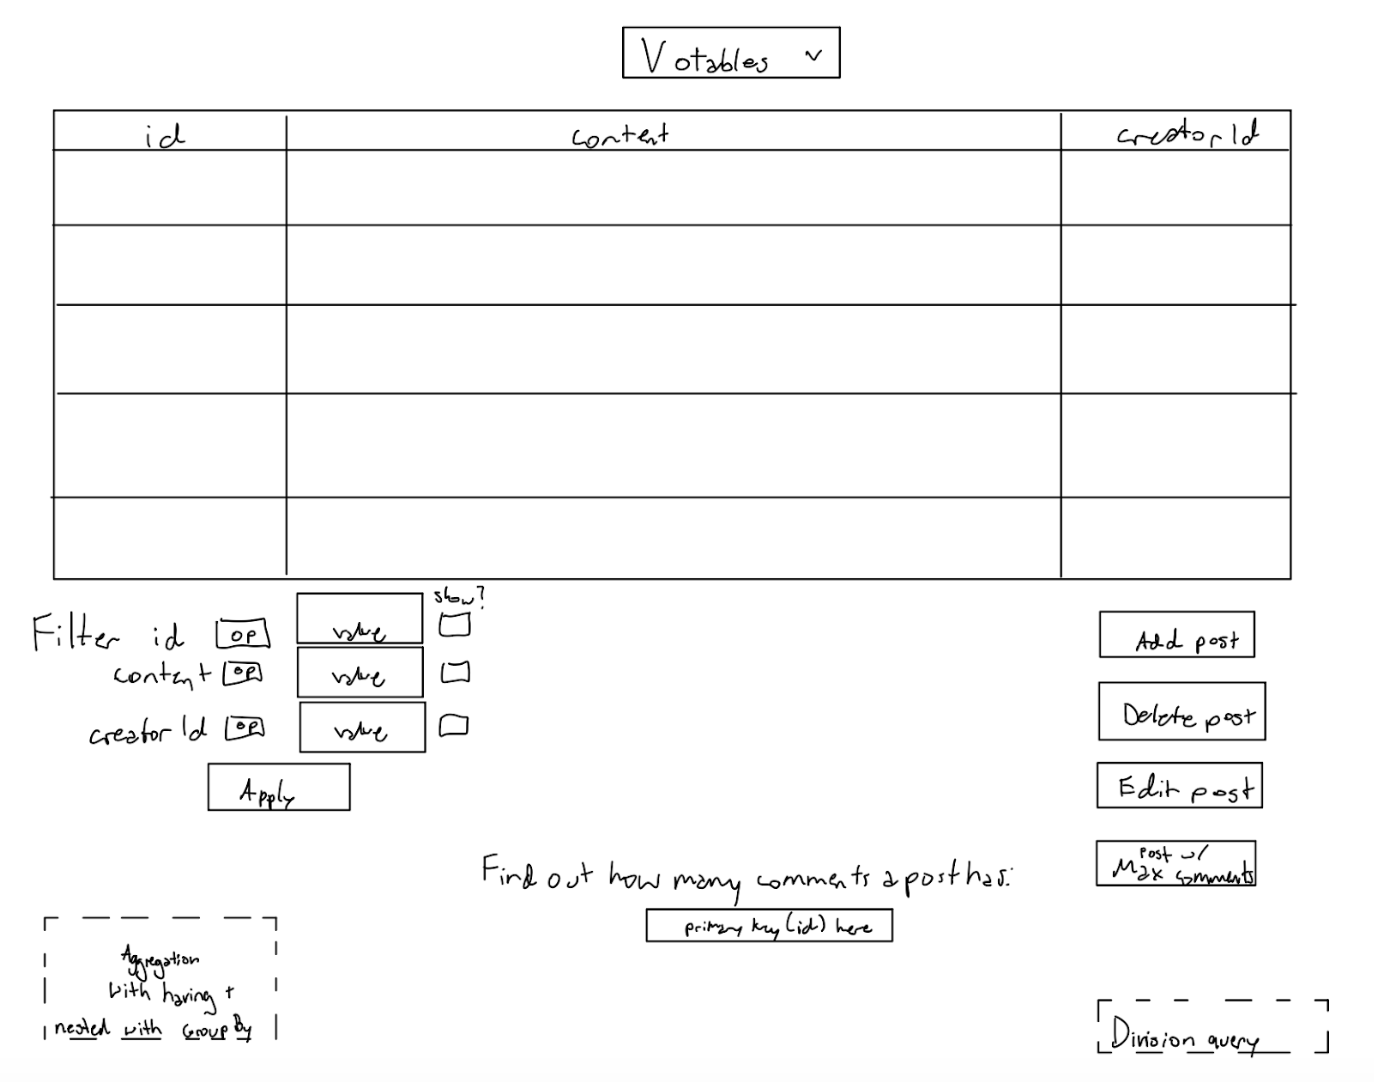 Votables
id content creatorId
show?
Filter id op value
content op value
creatorId op value
Apply
Add post
Delete post
Edit post
Post w/
Max comments
Find out how many comments a post has:
primary key (id) here
Aggregation
with having +
nested with Group By
Division query